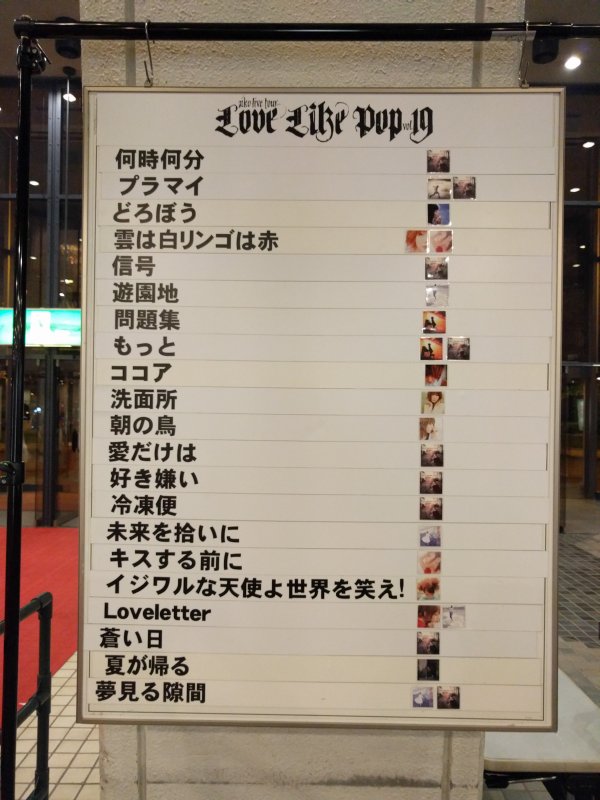 aiko live tour
Love Like Pop vol.19
何時何分
プラマイ
どろぼう
雲は白リンゴは赤
信号
遊園地
問題集
もっと
ココア
洗面所
朝の鳥
愛だけは
好き嫌い
冷凍便
未来を拾いに
キスする前に
イジワルな天使よ世界を笑え!
Loveletter
蒼い日
夏が帰る
夢見る隙間